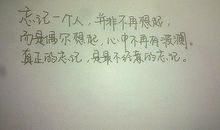 忘记一个人，并非不再想起，
而是偶尔想起，心中不再有波澜。
真正的忘记，是最不经意的忘记。